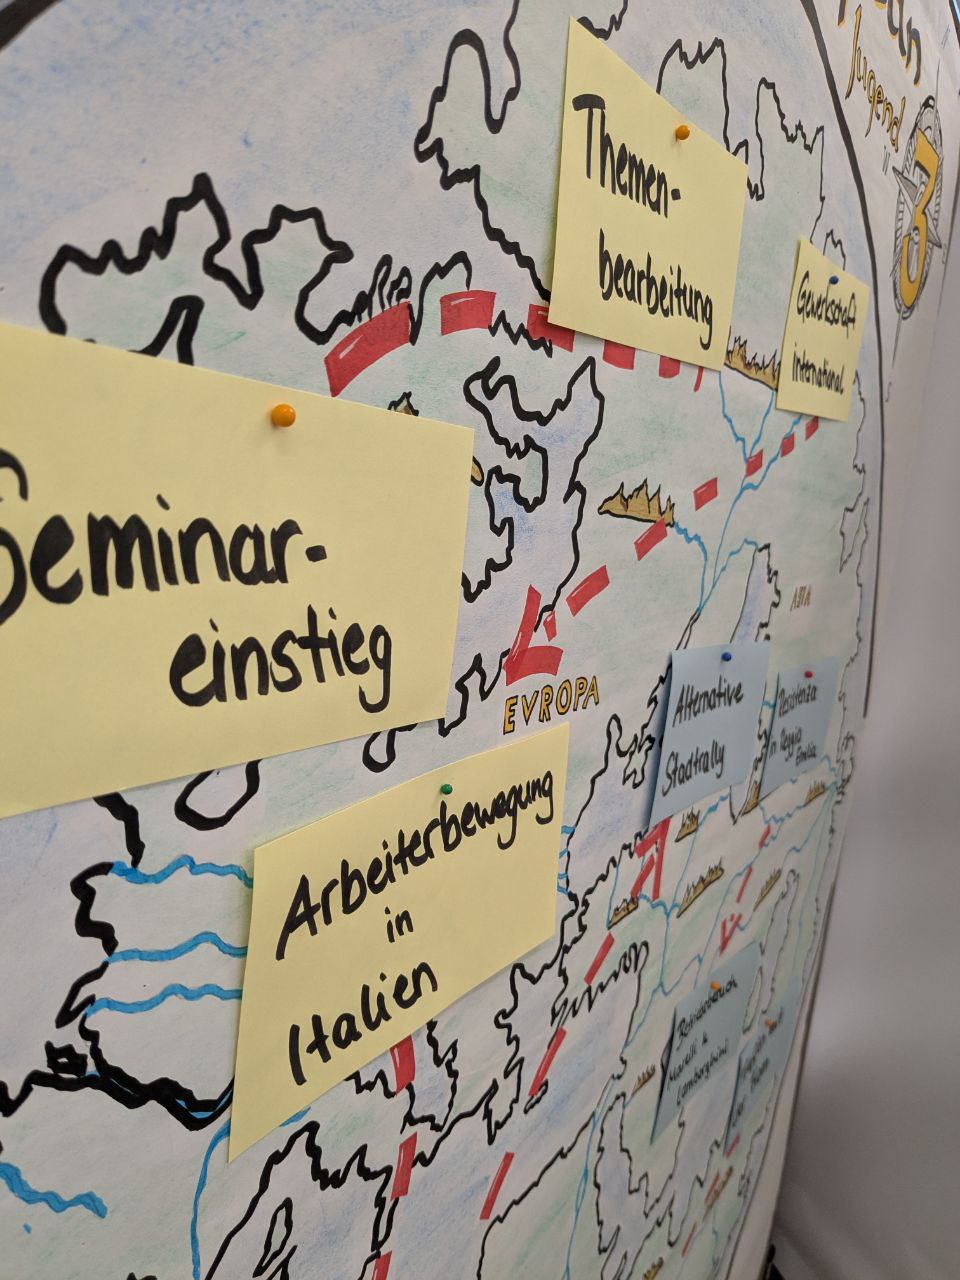 Jugend
III
3
Themen-
bearbeitung
Gewerkschaft
international
Seminar-
einstieg
EVROPA
Alternative
Stadtrally
Resistenza
in Reggio
Emilia
Arbeiterbewegung
in
Italien
Betriebsbesuch
Marelli &
Lamborghini